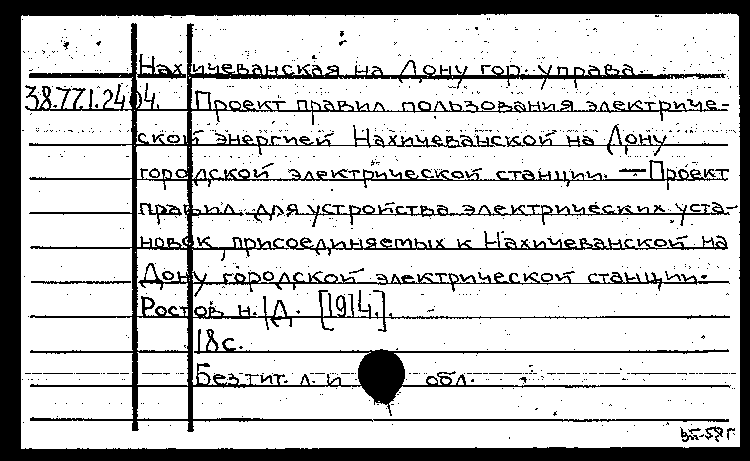 Нахичеванская на Дону гор. управа.
38.77.1.2404. Проект правил пользования электриче-
ской энергией Нахичеванской на Дону
городской электрической станции. — Проект
правил для устройства электрических уста-
новок, присоединяемых к Нахичеванской на
Дону городской электрической станции.
Ростов н./Д. [1914.].
18 с.
Без тит. л. и обл.